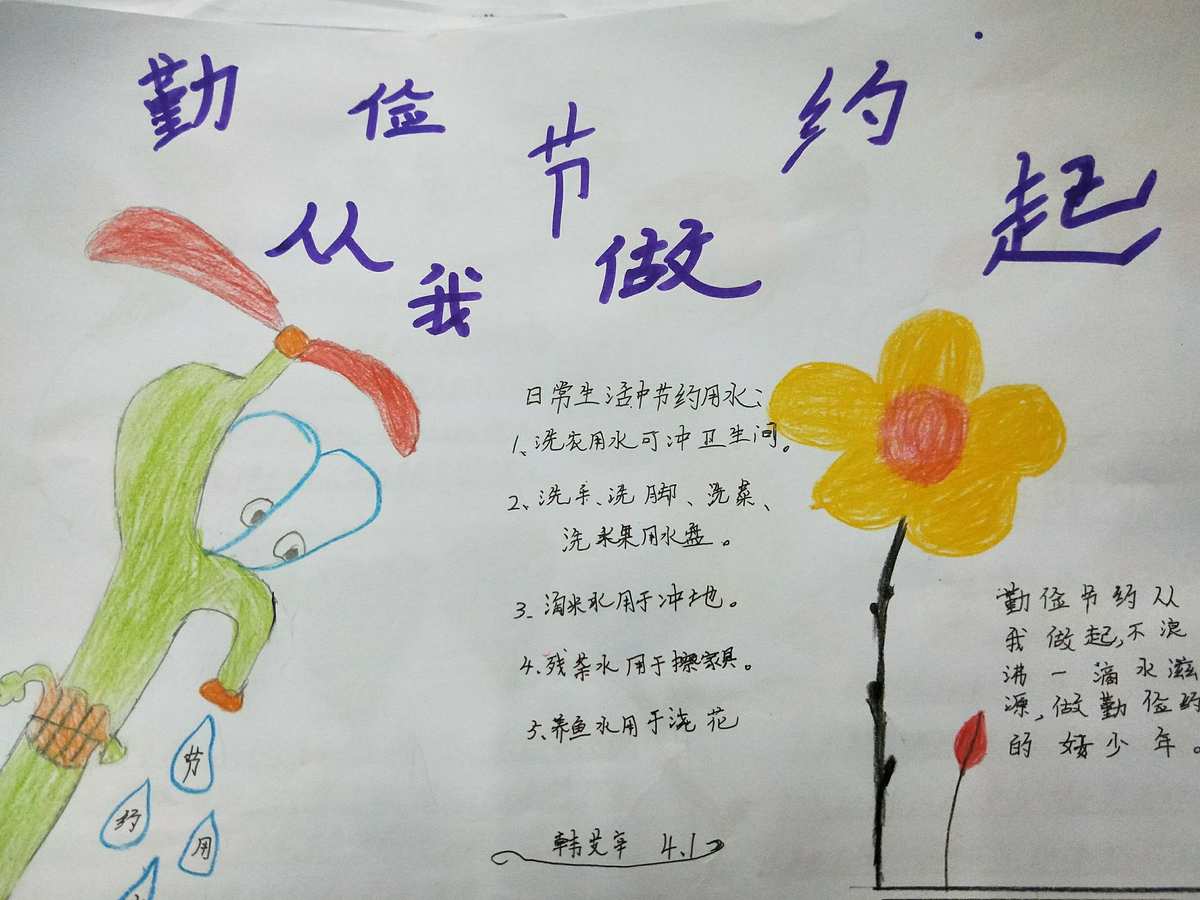 勤俭节约
从我做起
日常生活中节约用水:
1、洗衣用水可冲卫生间。
2、洗手、洗脚、洗菜、
洗水果用水盘。
3、淘米水用于冲地。
4、残茶水用于擦家具。
5、养鱼水用于浇花
4.1
勤俭节约从
我做起,不浪
沸一滴水滋
源,做勤俭约
的好少年。
节
约
用